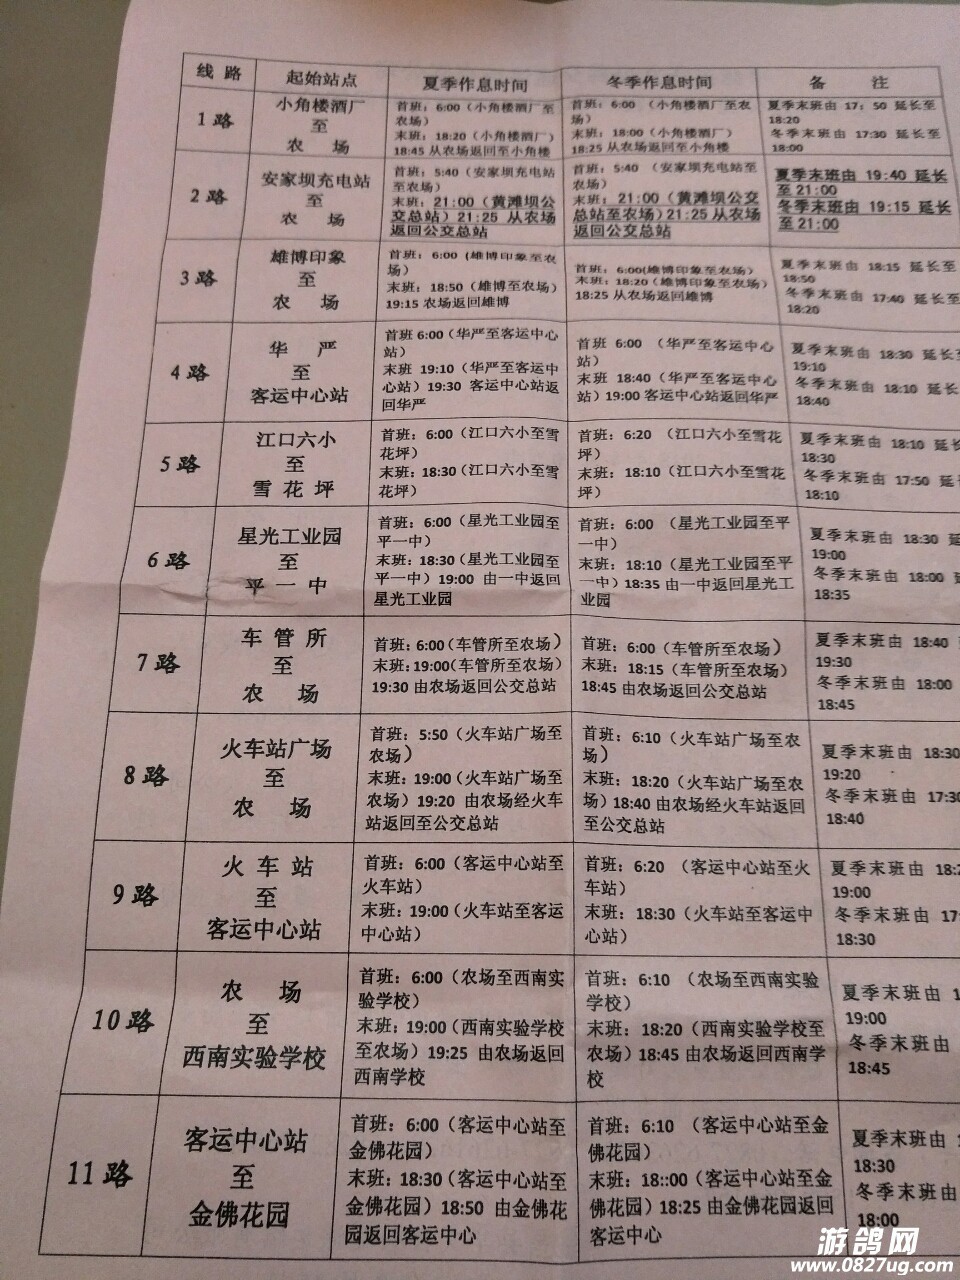 线 路 起始站点 夏季作息时间 冬季作息时间 备 注
1路
小角楼酒厂
至
农 场
首班：6:00（小角楼酒厂至
农场）
末班：18:20（小角楼酒厂）
18:45 从农场返回至小角楼
首班：6:00 （小角楼酒厂至农
场）
末班：18:00（小角楼酒厂）
18:25 从农场返回至小角楼
夏季末班由 17：50 延长至
18:20
冬季末班由 17:30 延长至
18:00
2路
安家坝充电站
至
农 场
首班：5:40（安家坝充电站
至农场）
末班：21:00（黄滩坝公
交总站）21:25 从农场
返回公交总站
首班：5:40 （安家坝充电站至
农场）
末班：21:00（黄滩坝公交
总站至农场）21:25 从农场
返回公交总站
夏季末班由 19:40 延长
至 21:00
冬季末班由 19:15 延长
至 21:00
3路
雄博印象
至
农 场
首班：6:00 (雄博印象至农
场）
末班：18:50（雄博至农场）
19:15 农场返回雄博
首班：6:00(雄博印象至农场）
末班：18:20（雄博印象至农场）
18:25 从农场返回雄博
夏季末班由 18:15 延长至
18:50
冬季末班由 17:40 延长至
18:20
4路
华 严
至
客运中心站
首班 6:00（华严至客运中心
站）
末班 19:10（华严至客运中
心站）19:30 客运中心站返
回华严
首班 6:00 （华严至客运中心
站）
末班 18:40（华严至客运中心
站）19:00 客运中心站返华严
夏季末班由 18:30 延长至
19:10
冬季末班由 18:10 延长至
18:40
5路
江口六小
至
雪 花 坪
首班：6:00（江口六小至雪
花坪）
末班：18:30（江口六小至雪
花坪）
首班：6:20 （江口六小至雪花
坪）
末班：18:10（江口六小至雪花
坪）
夏季末班由 18:10 延长
18:30
冬季末班由 17:50 延长
18:10
6路
星光工业园
至
平 一 中
首班：6:00（星光工业园至
平一中）
末班：18:30(星光工业园至
平一中）19:00 由一中返回
星光工业园
首班：6:00 （星光工业园至平
一中）
末班：18:10（星光工业园至平
一中）18:35 由一中返回星光工
业园
夏季末班由 18:30 延
19:00
冬季末班由 18:00 延
18:35
7路
车 管 所
至
农 场
首班：6:00(车管所至农场）
末班：19:00(车管所至农场)
19:30 由农场返回公交总站
首班：6:00（车管所至农场）
末班：18:15（车管所至农场）
18:45 由农场返回公交总站
夏季末班由 18:40
19:30
冬季末班由 18:00
18:45
8路
火车站广场
至
农 场
首班：5:50（火车站广场至
农场）
末班：19:00(火车站广场至
农场）19:20 由农场经火车
站返回至公交总站
首班：6:10（火车站广场至农
场）
末班：18:20（火车站广场至农
场）18:40 由农场经火车站返回
至公交总站
夏季末班由 18:30
19:20
冬季末班由 17:30
18:40
9路
火 车 站
至
客运中心站
首班：6:00（客运中心站至
火车站）
末班：19:00（火车站至客运
中心站）
首班：6:20 （客运中心站至火
车站）
末班：18:30（火车站至客运中
心站）
夏季末班由 18:2
19:00
冬季末班由 17:
18:30
10路
农 场
至
西南实验学校
首班：6:00（农场至西南实
验学校）
末班：19:00（西南实验学校
至农场）19:25 由农场返回
西南学校
首班：6:10 （农场至西南实验
学校）
末班：18:20（西南实验学校至
农场）18:45 由农场返回西南学
校
夏季末班由 1
19:00
冬季末班由
18:45
11路
客运中心站
至
金佛花园
首班：6:00（客运中心站至
金佛花园）
末班：18:30（客运中心站至
金佛花园）18:50 由金佛花
园返回客运中心
首班：6:10 （客运中心站至金
佛花园）
末班：18::00（客运中心站至金
佛花园）18:25 由金佛花园返回
客运中心
夏季末班由
18:30
冬季末班由
18:00
游鸽网
www.0827ug.com